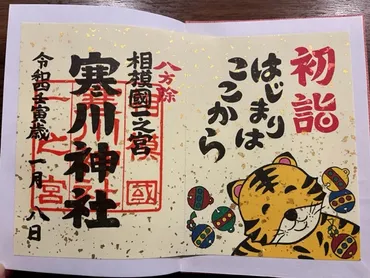 初詣
はじまりは
ここから
八方除
相模國一之宮
寒川神社
令和四壬寅歳 一月 八日
相模國
一之宮